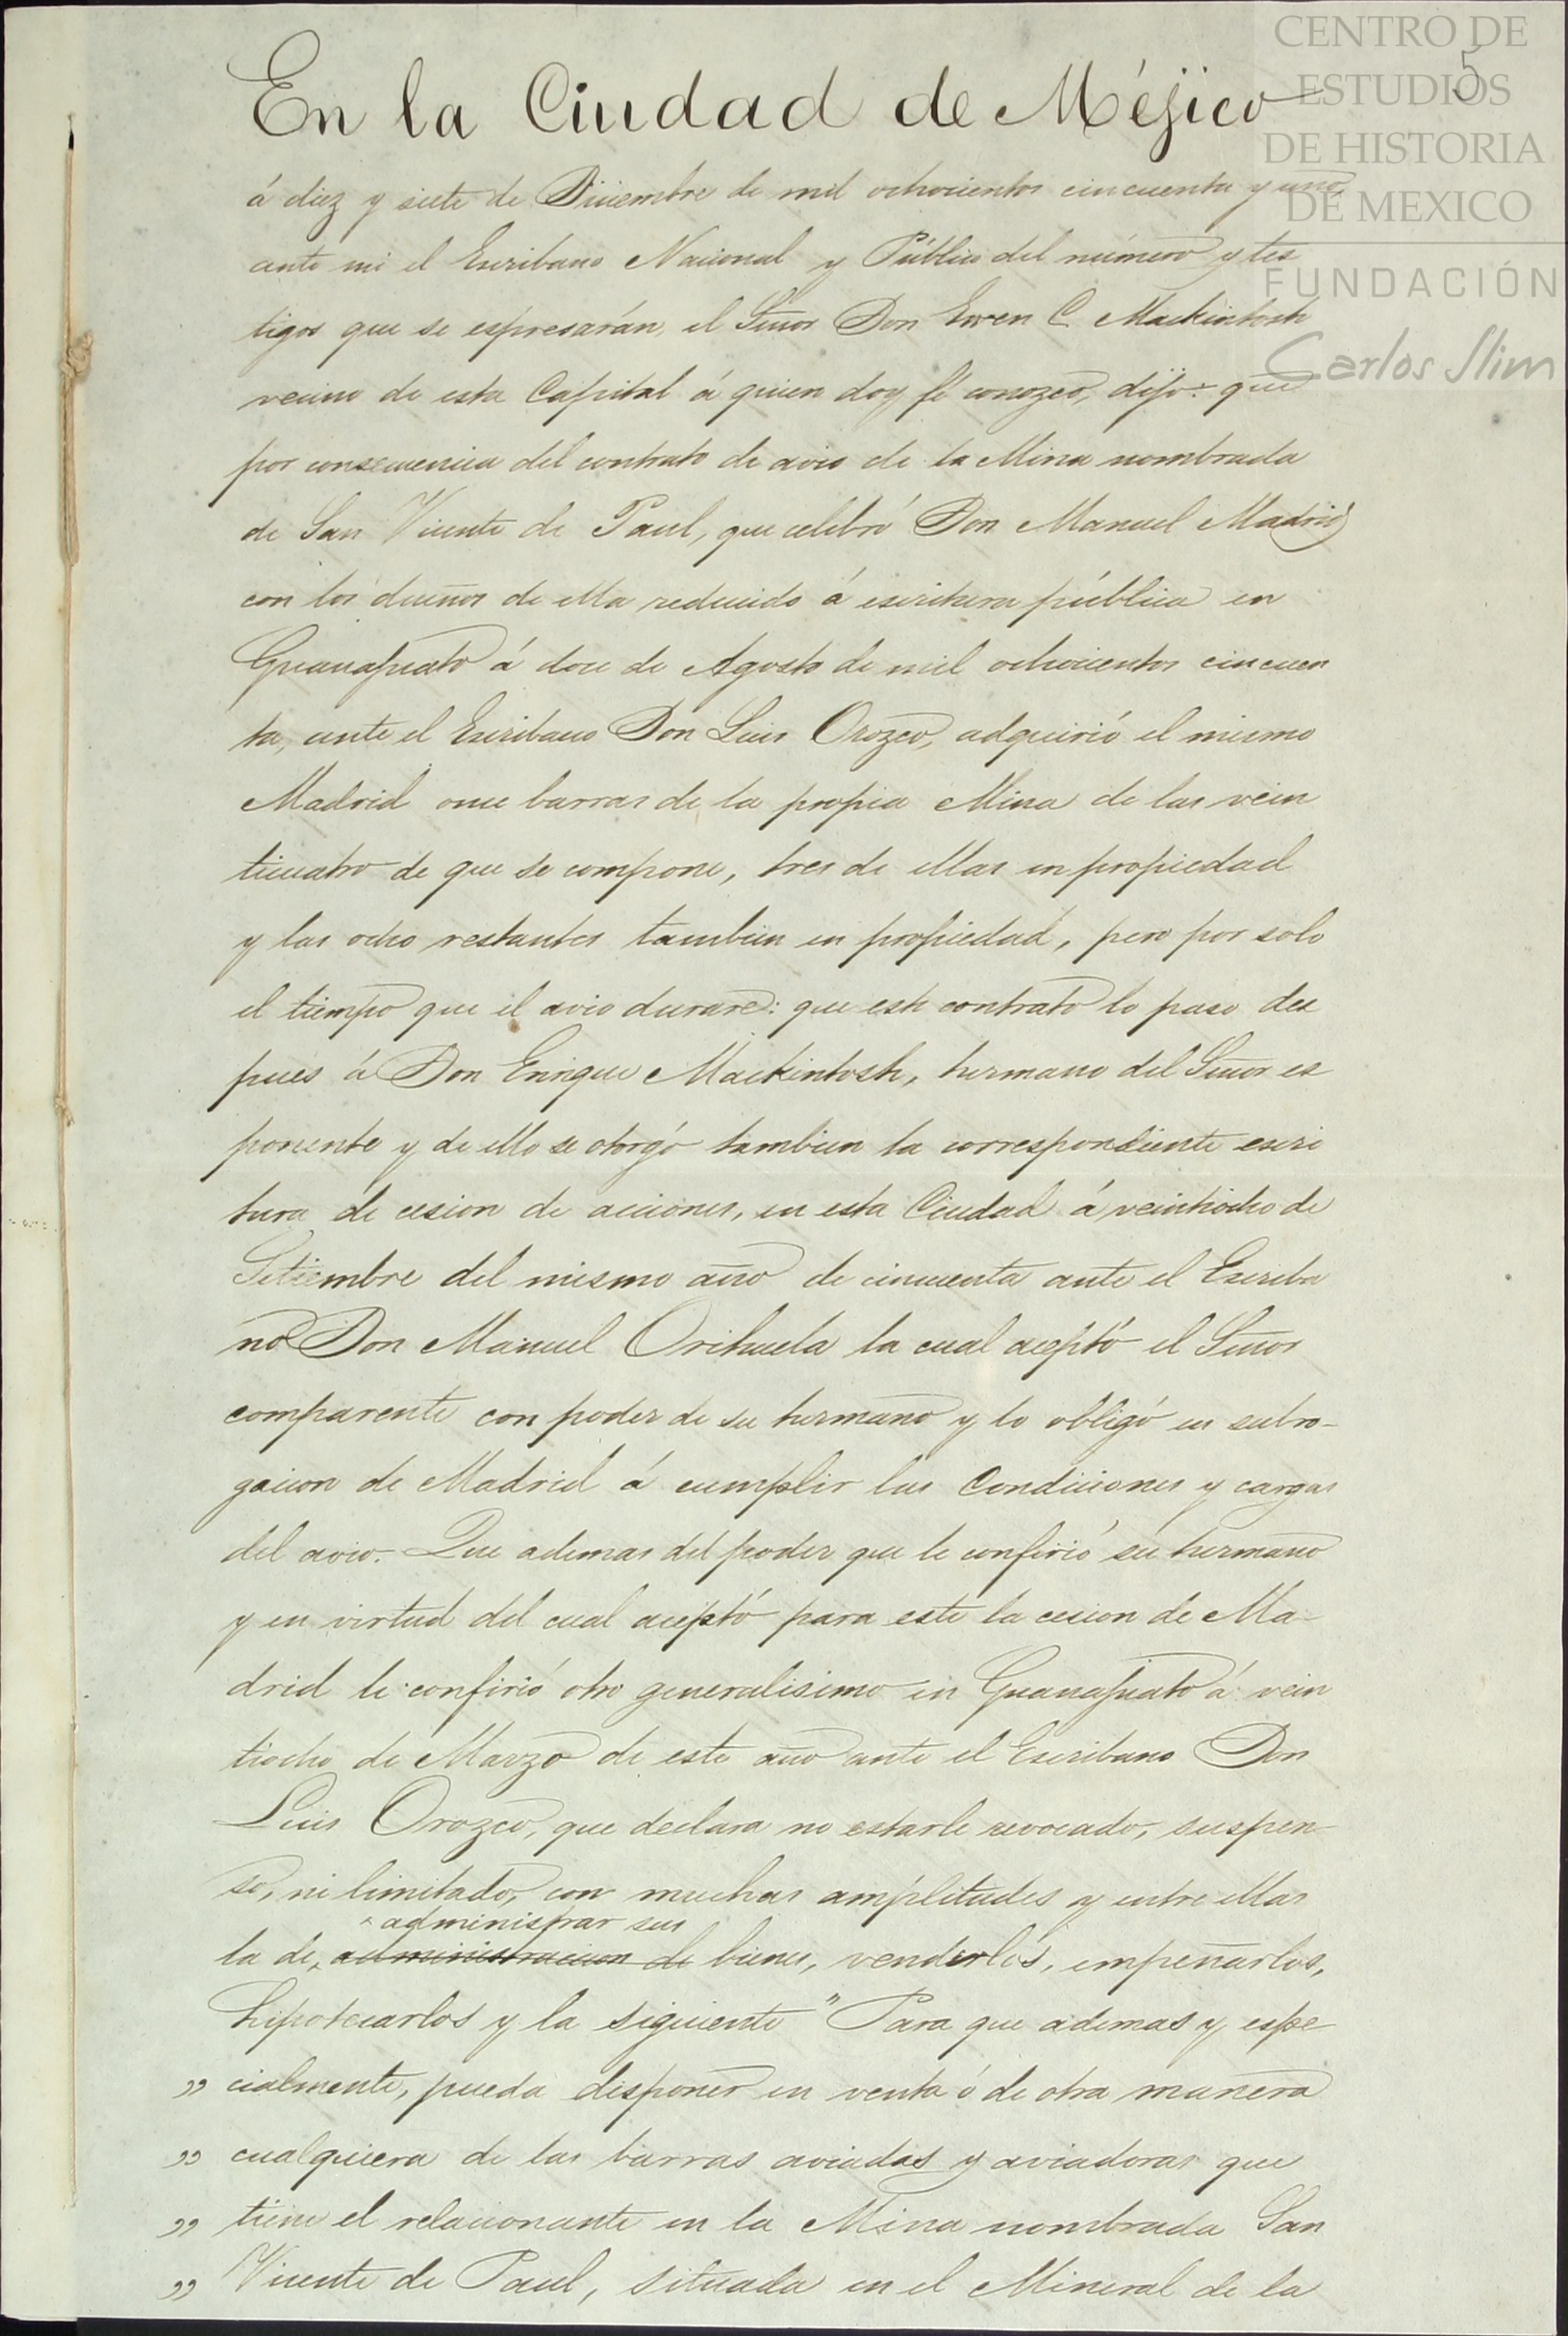 CENTRO DE
ESTUDIOS
DE HISTORIA
DE MEXICO
FUNDACIÓN
Carlos Slim
5
En la Ciudad de Méjico
á diez y siete de Diciembre de mil ochocientos cincuenta y uno,
ante mi el Escribano Nacional y Público del número y tes
tigos que se espresarán, el Señor Don Ewen C. Mackintosh
vecino de esta Capital á quien doy fé conozco, dijo: que
por consecuencia del contrato de avio de la Mina nombrada
de San Vicente de Paul, que celebró Don Manuel Madrid
con los dueños de ella reducido á escritura pública en
Guanajuato á doce de Agosto de mil ochocientos cincuen
ta, ante el Escribano Don Luis Orozco, adquirió el mismo
Madrid once barras de la propia Mina de las vein
ticuatro de que se compone, tres de ellas en propiedad
y las ocho restantes tambien en propiedad, pero por solo
el tiempo que el avio durare: que este contrato lo paso des
pues á Don Enrique Mackintosh, hermano del Señor es
ponente y de ello se otorgó tambien la correspondiente escri
tura de cesion de acciones, en esta Ciudad á veintiocho de
Setiembre del mismo año de cincuenta ante el Escriba
no Don Manuel Orihuela la cual aceptó el Señor
comparente con poder de su hermano y lo obligó en subro-
gacion de Madrid á cumplir las Condiciones y cargas
del avio. Que ademas del poder que le confirió su hermano
y en virtud del cual aceptó para este la cesion de Ma-
drid le confirió otro generalisimo en Guanajuato á vein
tiocho de Marzo de este año ante el Escribano Don
Luis Orozco, que declara no estarle revocado, suspen-
so, ni limitado, con muchas amplitudes y entre ellas
administrar sus
la de, administracion de bienes, venderlos, empeñarlos,
hipotecarlos y la siguiente "Para que ademas y espe
" cialmente, pueda disponer en venta ó de otra manera
" cualquiera de las barras aviadas y aviadoras que
" tiene el relacionante en la Mina nombrada San
" Vicente de Paul, situada en el Mineral de la